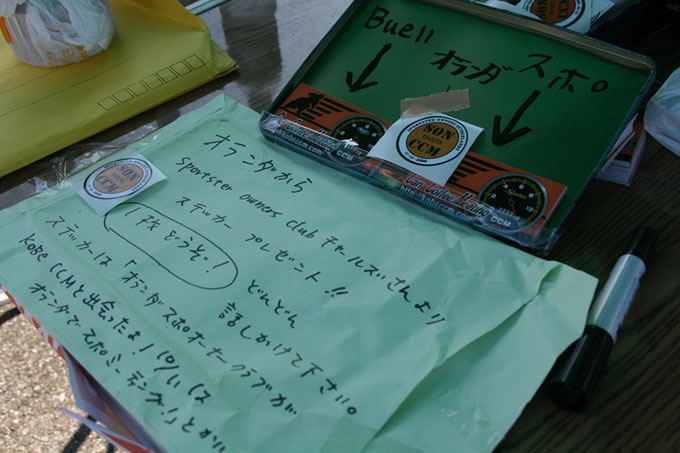 Buell
オランダ スポ。
SON
CCM
CCM
http://kobeccm.com
CCM
オランダから
SON
CCM
Sportster owners club チャールズ さんより
ステッカー プレゼント!!
1枚どうぞ!
どんどん
話しかけて下さい。
ステッカーは「オランダスポオーナークラブが
Kobe CCMと出会ったよ! 10/11は
オランダでスポミーティング!」とか